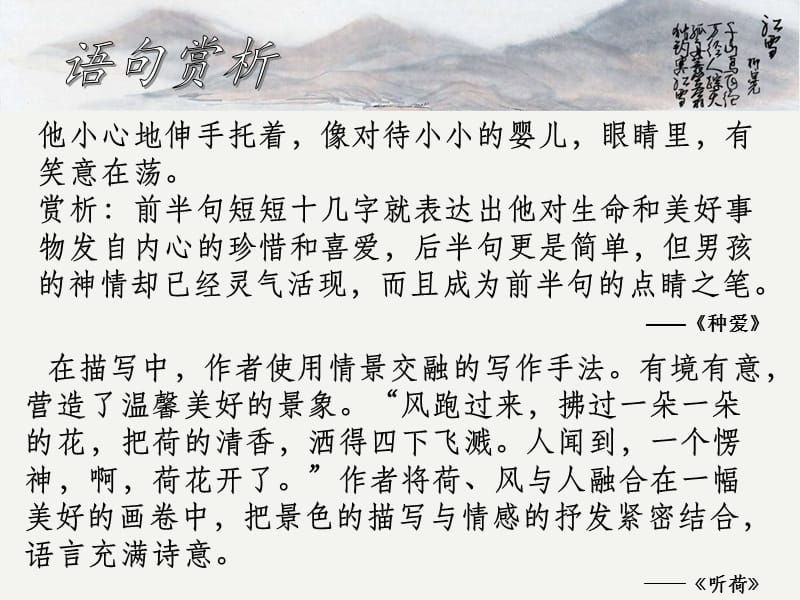 语句赏析
江雪
他小心地伸手托着，像对待小小的婴儿，眼睛里，有
笑意在荡。
赏析：前半句短短十几字就表达出他对生命和美好事
物发自内心的珍惜和喜爱，后半句更是简单，但男孩
的神情却已经灵气活现，而且成为前半句的点睛之笔。
——《种爱》
在描写中，作者使用情景交融的写作手法。有境有意，
营造了温馨美好的景象。“风跑过来，拂过一朵一朵
的花，把荷的清香，洒得四下飞溅。人闻到，一个愣
神，啊，荷花开了。”作者将荷、风与人融合在一幅
美好的画卷中，把景色的描写与情感的抒发紧密结合，
语言充满诗意。
——《听荷》